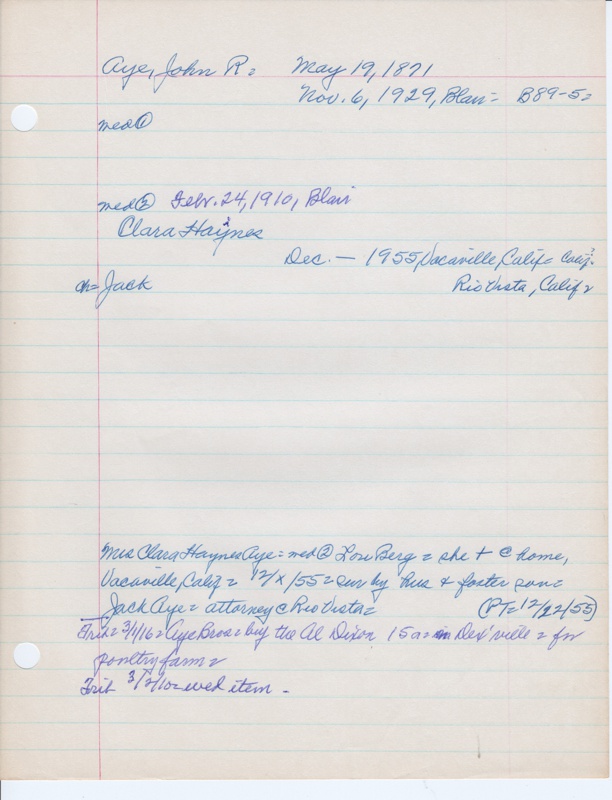 Aye, John R= May 19, 1871
Nov. 6, 1929, Blair= B89-5=
med ①
med ② Febr. 24, 1910, Blair
Clara Haynes
Dec. — 1955, Vacaville, Calif=
ch= Jack Rio Vista, Calif=
Mrs Clara Haynes Aye= med ② Lou Berg= she + @ home,
Vacaville, Calif= 12/x/55= sur by hus + foster son=
Jack Aye= attorney @ Rio Vista= (PT=12/22/55)
Trib= 3/1/16= Aye Bros= buy the Al Dixon 15a= in Dex'ville= for
poultry farm=
Trib 3/2/10= wed item -